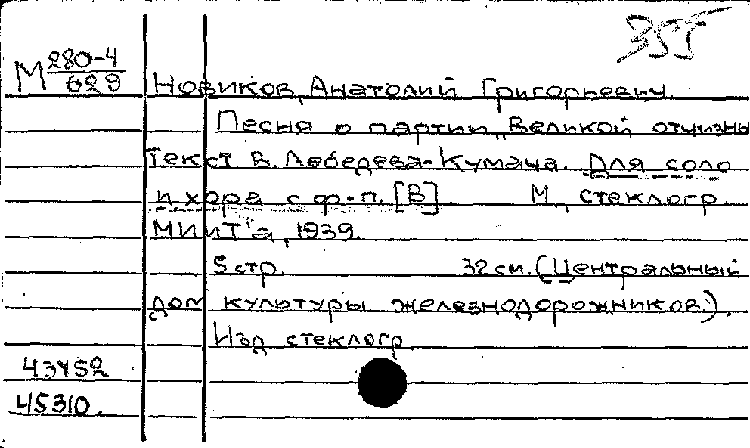 355
М 280-4
629
Новиков, Анатолий Григорьевич.
Песня о партии „Великой отчизны
Текст В. Лебедева-Кумача. Для соло
и хора с ф-п. [В] М., стеклогр.
МИИТ'а, 1939.
5 стр. 32 см. (Центральный
дом культуры железнодорожников).
Изд. стеклогр.
43452
45310.